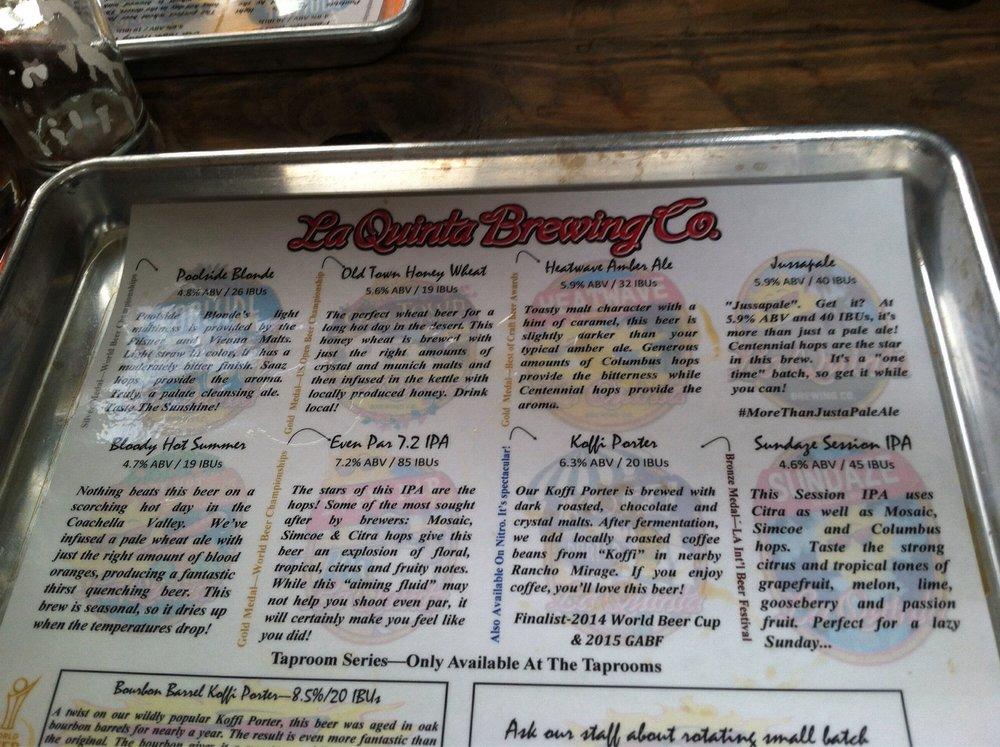 La Quinta Brewing Co.
Poolside Blonde
4.8% ABV / 26 IBUs
Poolside Blonde's light
maltiness is provided by the
Pilsner and Vienna Malts.
Light straw in color, it has a
moderately bitter finish. Saaz
hops provide the aroma.
Truly, a palate cleansing ale.
Taste The Sunshine!
World Beer Championships
Old Town Honey Wheat
5.6% ABV / 19 IBUs
The perfect wheat beer for a
long hot day in the desert. This
honey wheat is brewed with
just the right amounts of
crystal and munich malts and
then infused in the kettle with
locally produced honey. Drink
local!
Gold Medal—U.S Open Beer Championship
Heatwave Amber Ale
5.9% ABV / 32 IBUs
Toasty malt character with a
hint of caramel, this beer is
slightly darker than your
typical amber ale. Generous
amounts of Columbus hops
provide the bitterness while
Centennial hops provide the
aroma.
Gold Medal—Best of Craft Beer Awards
Jussapale
5.9% ABV / 40 IBUs
"Jussapale". Get it? At
5.9% ABV and 40 IBUs, it's
more than just a pale ale!
Centennial hops are the star
in this brew. It's a "one
time" batch, so get it while
you can!
#MoreThanJustaPaleAle
BREWING CO
Bloody Hot Summer
4.7% ABV / 19 IBUs
Nothing beats this beer on a
scorching hot day in the
Coachella Valley. We've
infused a pale wheat ale with
just the right amount of blood
oranges, producing a fantastic
thirst quenching beer. This
brew is seasonal, so it dries up
when the temperatures drop!
Even Par 7.2 IPA
7.2% ABV / 85 IBUs
The stars of this IPA are the
hops! Some of the most sought
after by brewers: Mosaic,
Simcoe & Citra hops give this
beer an explosion of floral,
tropical, citrus and fruity notes.
While this "aiming fluid" may
not help you shoot even par, it
will certainly make you feel like
you did!
Gold Medal—World Beer Championships
Koffi Porter
6.3% ABV / 20 IBUs
Our Koffi Porter is brewed with
dark roasted, chocolate and
crystal malts. After fermentation,
we add locally roasted coffee
beans from "Koffi" in nearby
Rancho Mirage. If you enjoy
coffee, you'll love this beer!
Finalist-2014 World Beer Cup
& 2015 GABF
Also Available On Nitro. It's spectacular!
Sundaze Session IPA
4.6% ABV / 45 IBUs
SUNDAZE
This Session IPA uses
Citra as well as Mosaic,
Simcoe and Columbus
hops. Taste the strong
citrus and tropical tones of
grapefruit, melon, lime,
gooseberry and passion
fruit. Perfect for a lazy
Sunday...
Bronze Medal—LA Int'l Beer Festival
Taproom Series—Only Available At The Taprooms
Bourbon Barrel Koffi Porter—8.5%/20 IBUs
A twist on our wildly popular Koffi Porter, this beer was aged in oak
bourbon barrels for nearly a year. The result is even more fantastic than
the original. The bourbon
Ask our staff about rotating small batch